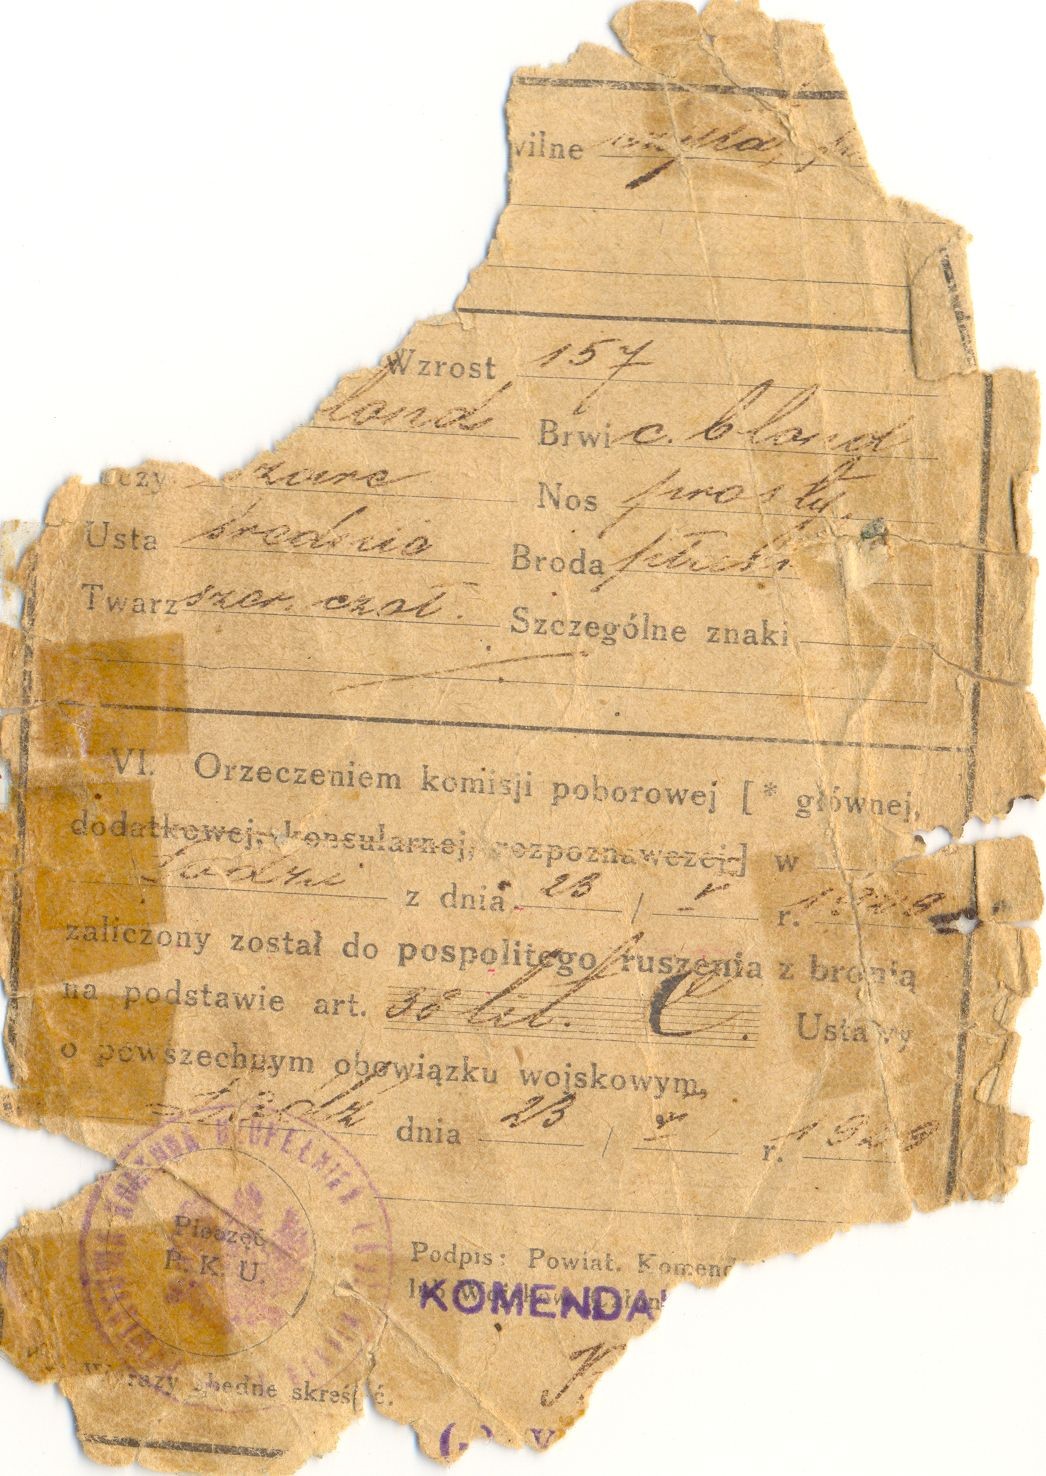 vilne
Wzrost 157
lond Brwi c. blond
oczy szare Nos prosty.
Usta średnie Broda
Twarz szer. czoł. Szczególne znaki
VI. Orzeczeniem komisji poborowej [* głównej,
dodatkowej, konsularnej, rozpoznawczej] w
Łodzi z dnia 23 / V r. 1929
zaliczony został do pospolitego ruszenia z bronią
na podstawie art. 58 lit. C. Ustawy
o powszechnym obowiązku wojskowym,
Łódź dnia 23 / V r. 1929
KOMENDA UZUPEŁNIEŃ
Pieczęć
P. K. U.
Podpis: Powiat. Komend
KOMENDA
Wyrazy zbędne skreślić.